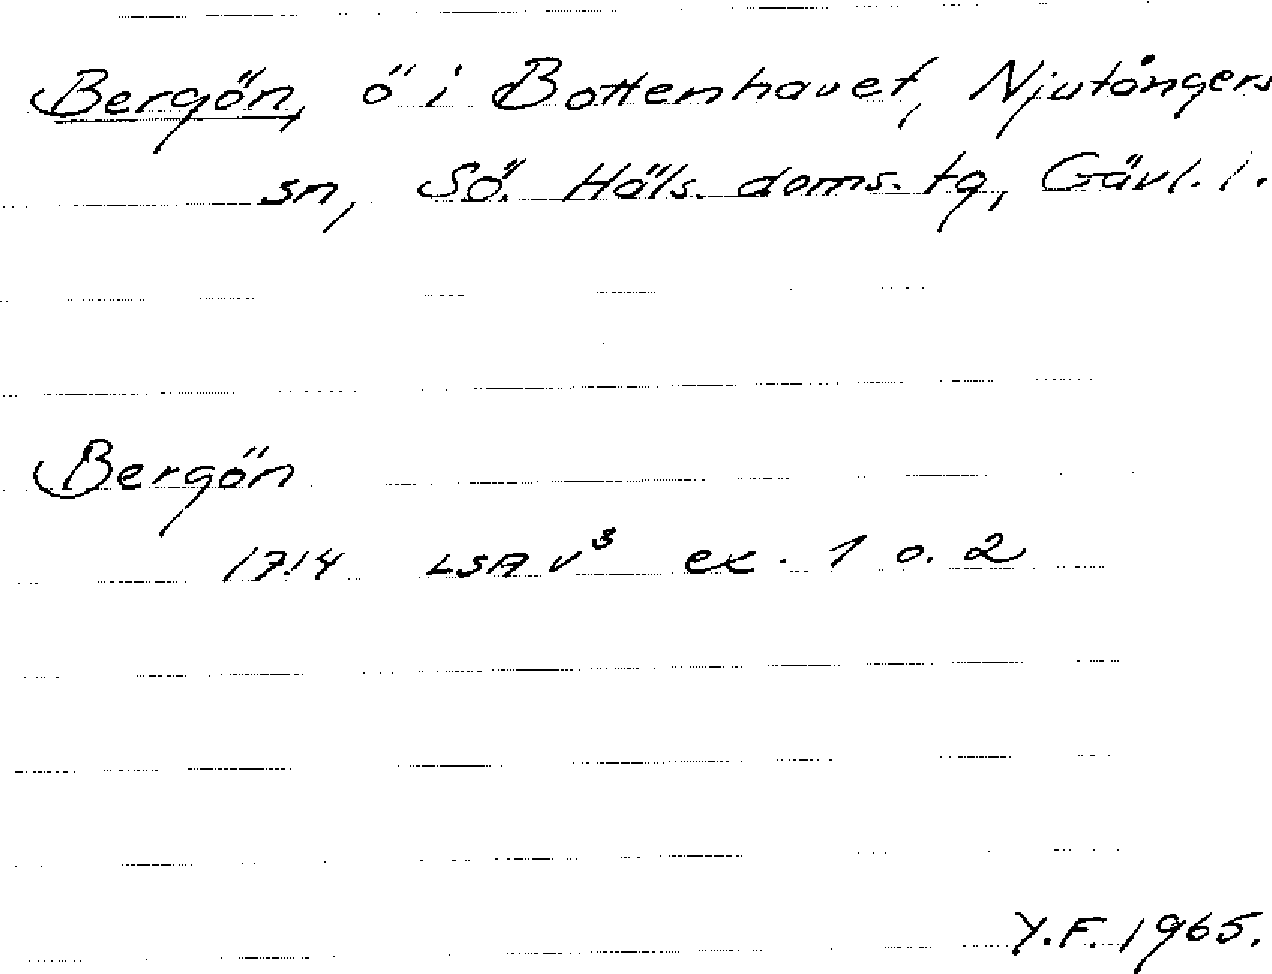 Bergön, ö i Bottenhavet, Njutångers
sn, Sö. Häls. doms. tg, Gävl. l.
Bergön
1714 LSA V³ ex. 1 o. 2
Y.F. 1965.